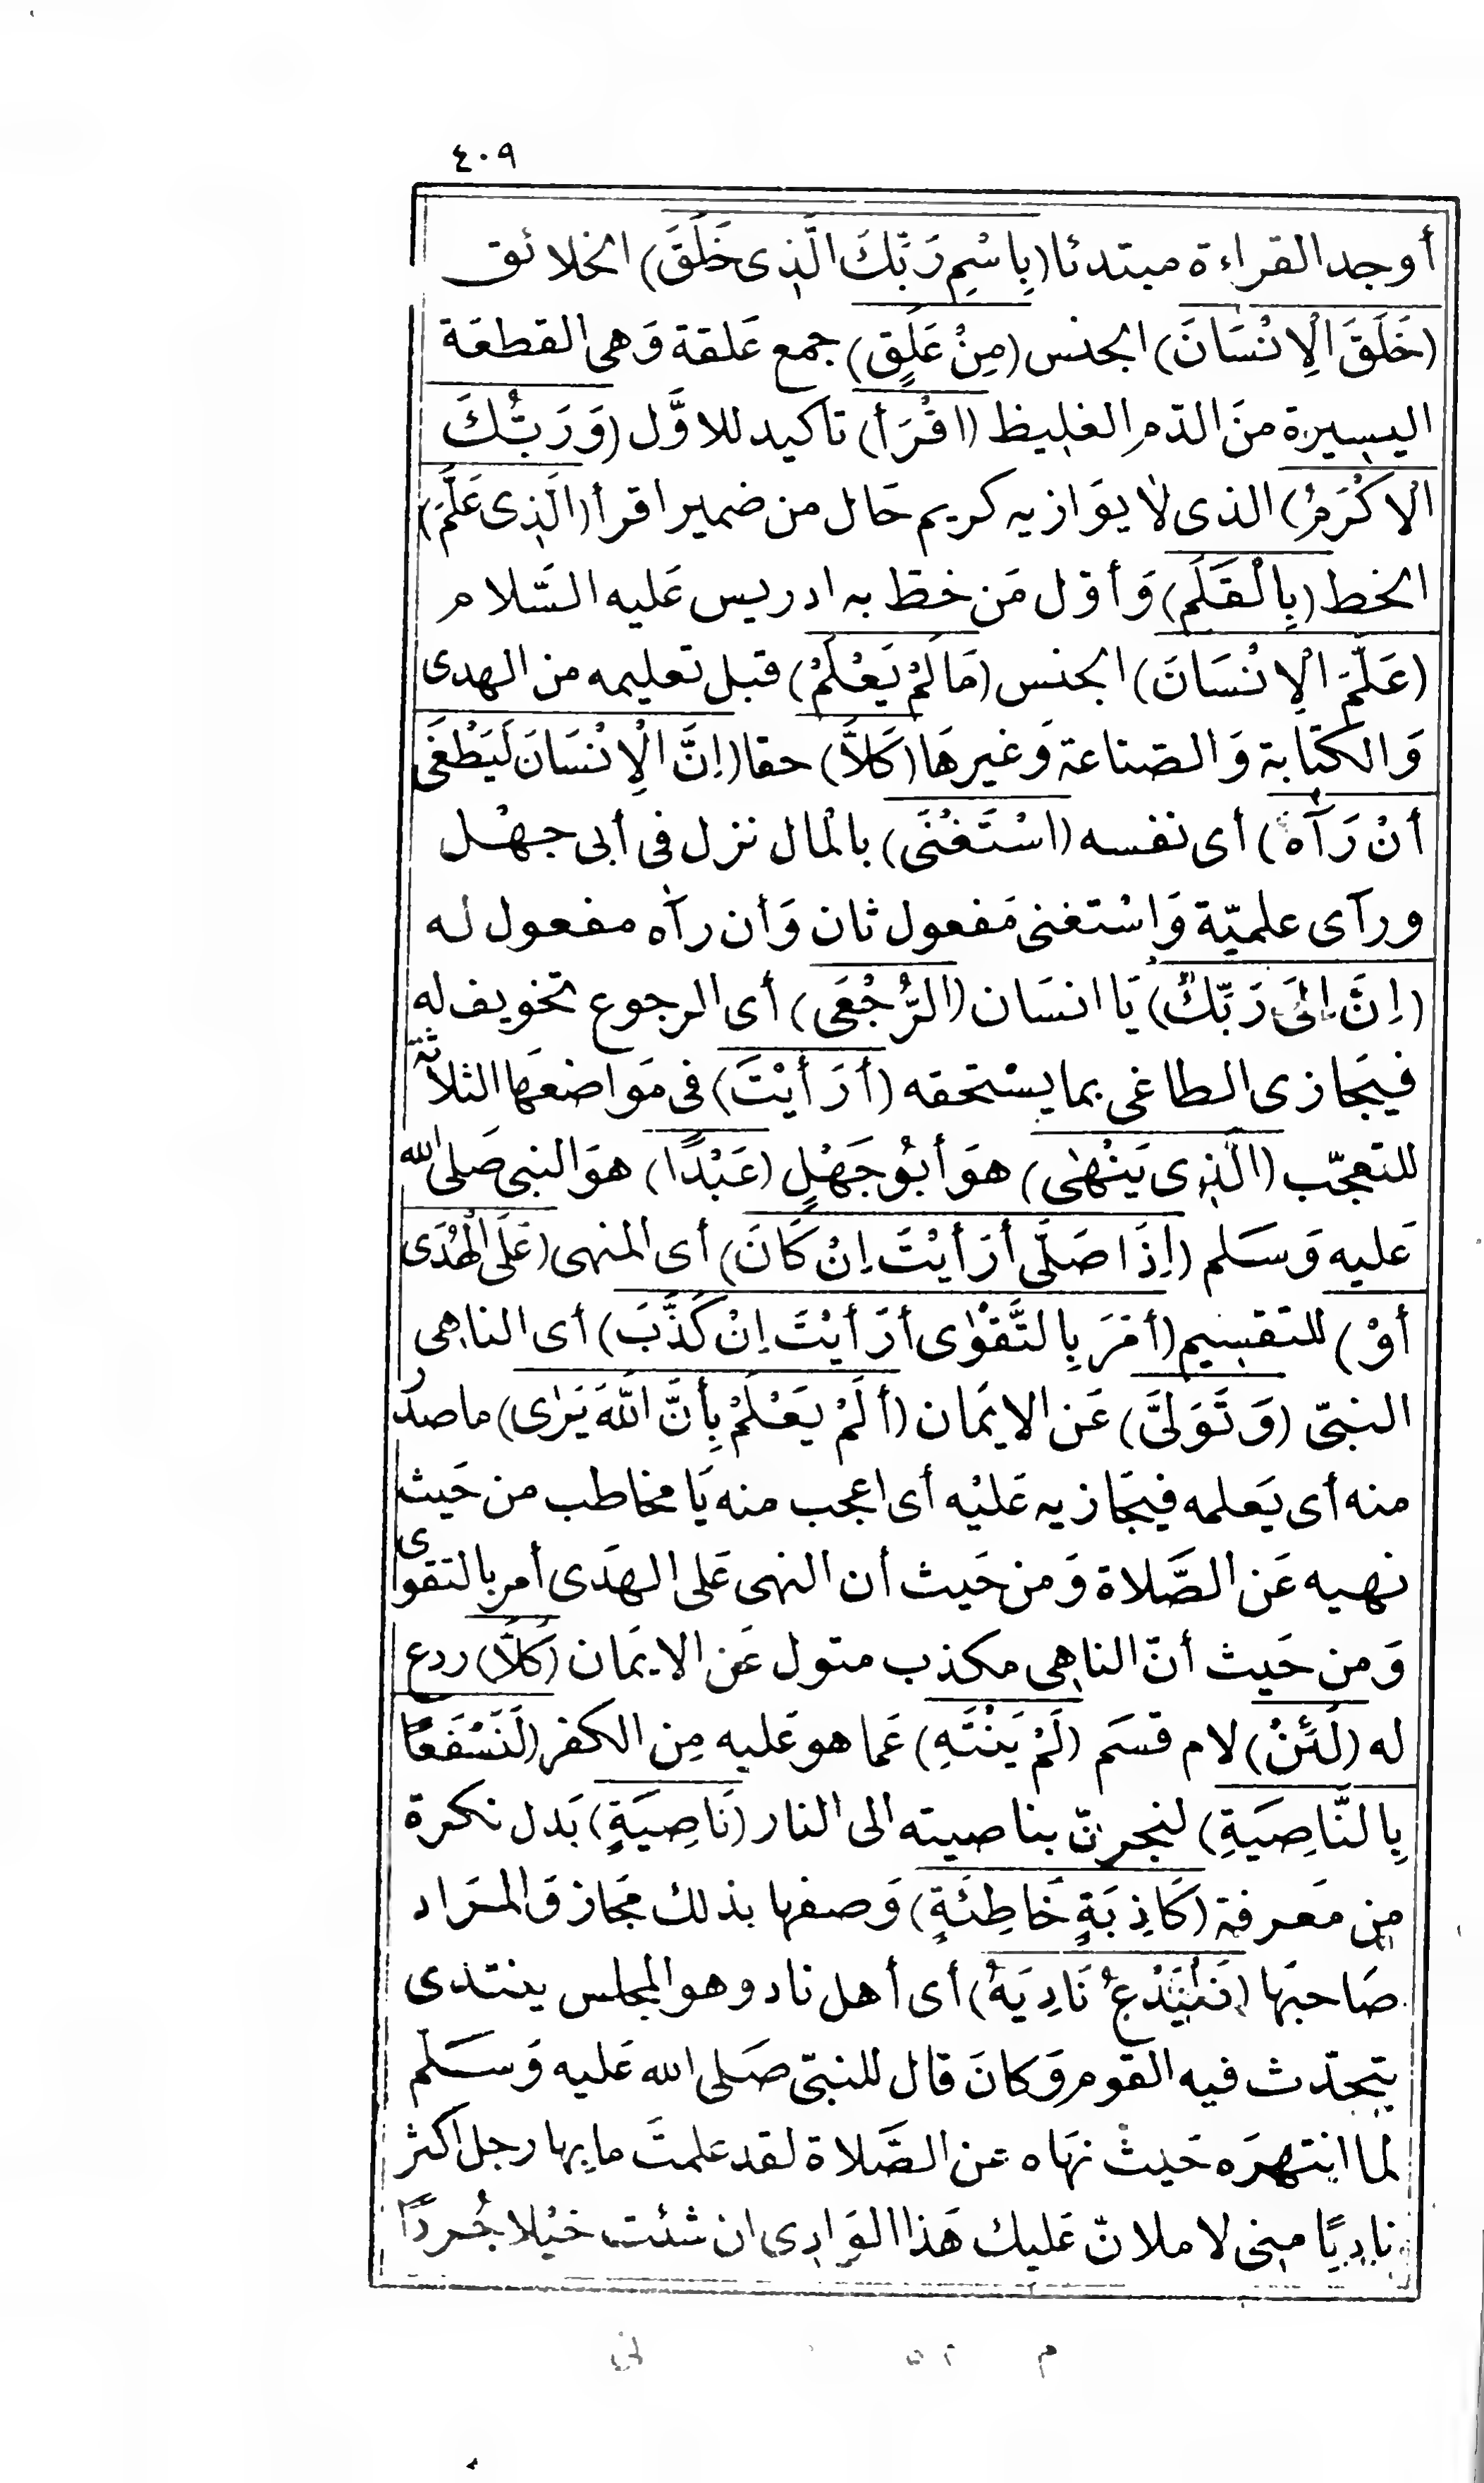 ٤٠٩
أوجد القراءة مبتدئا (بِاسْمِ رَبِّكَ الَّذِى خَلَقَ) الخلائق
(خَلَقَ الْاِنْسَانَ) الجنس (مِنْ عَلَقٍ) جمع عَلقة وَهى القطعَة
اليسيرة منَ الدّم الغليظ (اقْرَأ) تأكيد للاوَّل (وَرَبُّكَ
الْاَكْرَمُ) الذى لا يوَازيه كريم حَال من ضمير اقرأ (الَّذِى عَلَّمَ)
الخط (بِالْقَلَمِ) وَأوّل مَن خطّ به ادريس عَليه السَّلام
(عَلَّمَ الْاِنْسَانَ) الجنس (مَا لَمْ يَعْلَمْ) قبل تعليمه من الهدى
وَالكتَابة وَالصّناعة وَغيرهَا (كَلَّا) حقا (اِنَّ الْاِنْسَانَ لَيَطْغَى
أنْ رَآهُ) أى نفسه (اسْتَغْنَى) بالمال نزل فى أبى جهْل
ورآى علميّة وَاسْتغنى مَفعول ثان وَأن رآه مفعول له
(اِنَّ اِلَى رَبِّكَ) يَا انسَان (الرُّجْعَى) أى الرجوع تخويف له
فيجَازى الطاغى بما يسْتحقه (أرَأيْتَ) فى مَوَاضعهَا الثلاثة
للتعجّب (الَّذِى يَنْهٰى) هوَ أبُو جَهْلٍ (عَبْدًا) هوَ النبى صَلى الله
عَليه وَسَلم (اِذَا صَلَّى أرَأيْتَ اِنْ كَانَ) أى المنهى (عَلَى الْهُدَى
أوْ) للتقسيم (أمَرَ بِالتَّقوْٰى أرَأيْتَ اِنْ كَذَّبَ) أى الناهى
النبىّ (وَتَوَلَّى) عَن الايمَان (ألَمْ يَعْلَمْ بِأنَّ اللّٰهَ يَرٰى) ما صدَر
منه أى يَعلمه فيجَازيه عَليْه أى اعجب منه يَا مخاطب من حَيث
نهيه عَن الصَّلاة وَمن حَيث أن النهى عَلى الهدَى أمر بالتقوى
وَمن حَيث أنّ الناهى مكذب متول عَن الايمَان (كَلَّا) ردع
له (لَئِنْ) لام قسَم (لَمْ يَنْتَهِ) عَما هو عَليه مِن الكفر (لَنَسْفَعًا
بِالنَّاصِيَةِ) لنجرنّ بناصيته الى النار (نَاصِيَةٍ) بَدل نكرة
مِن مَعرفة (كَاذِبَةٍ خَاطِئَةٍ) وَصفها بذلك مجَاز وَالمرَاد
صَاحبهَا (فَلْيَدْعُ نَادِيَهُ) أى أهل ناد وهو المجلس ينتدى
يتحدّث فيه القوم وَكانَ قال للنبىّ صَلى الله عَليه وَسَلم
لما انتهرَه حَيث نهَاه عن الصَّلاة لقد عَلمتَ ما بها رجل أكثر
ناديًا منى لاملانّ عَليك هَذا الوَادى ان شئت خيْلا جُردًا